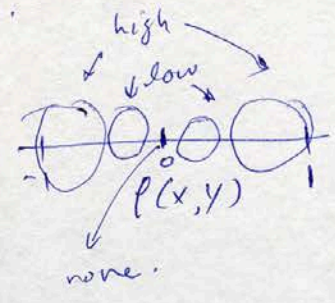 high
low
0
ρ(x,y)
none.